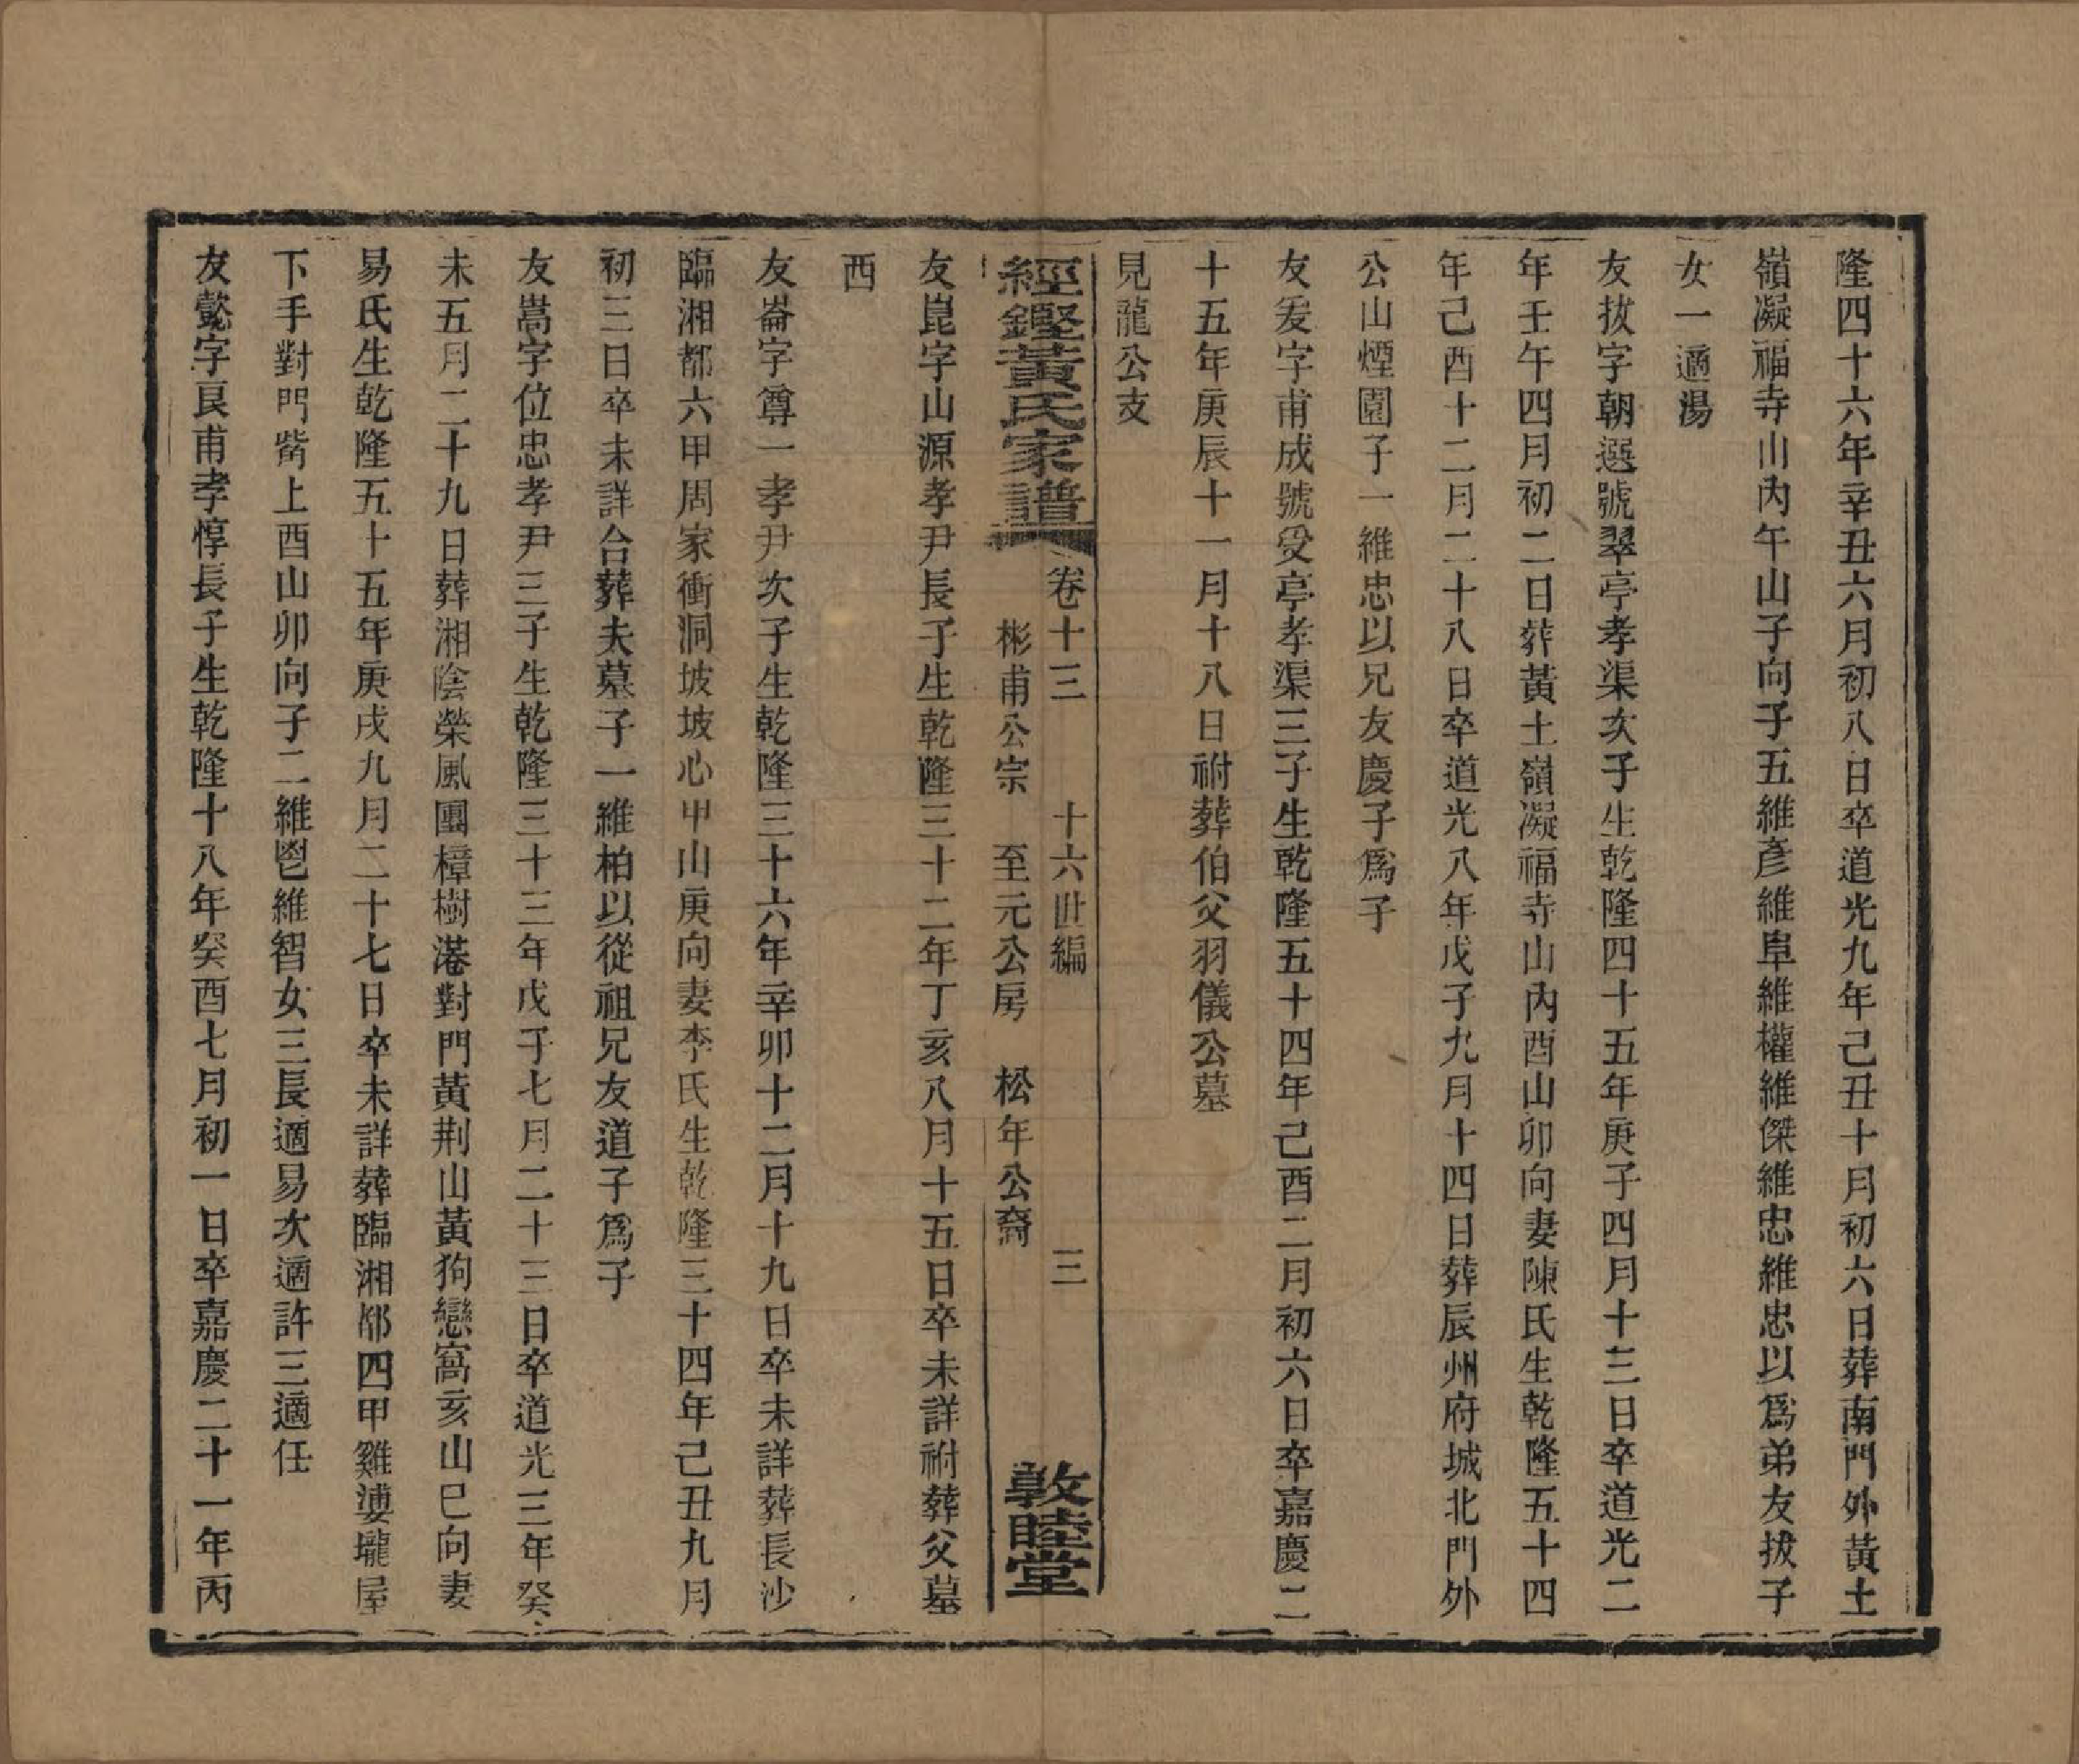 隆四十六年辛丑六月初八日卒道光九年己丑十月初六日葬南門外黃土
嶺凝福寺山內午山子向子五維彥維阜維權維傑維忠維忠以爲弟友拔子
女一適湯
友拔字朝選號翠亭孝渠次子生乾隆四十五年庚子四月十三日卒道光二
年壬午四月初二日葬黃土嶺凝福寺山內酉山卯向妻陳氏生乾隆五十四
年己酉十二月二十八日卒道光八年戊子九月十四日葬辰州府城北門外
公山煙園子一維忠以兄友慶子爲子
友爰字甫成號受亭孝渠三子生乾隆五十四年己酉二月初六日卒嘉慶二
十五年庚辰十一月十八日祔葬伯父羽儀公墓
見龍公支
經鏗黃氏家譜 卷十三 十六世編 三
彬甫公宗 至元公房 松年公裔 敦睦堂
友崑字山源孝尹長子生乾隆三十二年丁亥八月十五日卒未詳祔葬父墓
西
友崙字尊一孝尹次子生乾隆三十六年辛卯十二月十九日卒未詳葬長沙
臨湘都六甲周家衝洞坡坡心甲山庚向妻李氏生乾隆三十四年己丑九月
初三日卒未詳合葬夫墓子一維柏以從祖兄友道子爲子
友嵩字位忠孝尹三子生乾隆三十三年戊子七月二十三日卒道光三年癸
未五月二十九日葬湘陰榮風團樟樹港對門黃荆山黃狗戀窩亥山巳向妻
易氏生乾隆五十五年庚戌九月二十七日卒未詳葬臨湘都四甲雞婆壠屋
下手對門嵴上酉山卯向子二維鬯維智女三長適易次適許三適任
友懿字良甫孝惇長子生乾隆十八年癸酉七月初一日卒嘉慶二十一年丙